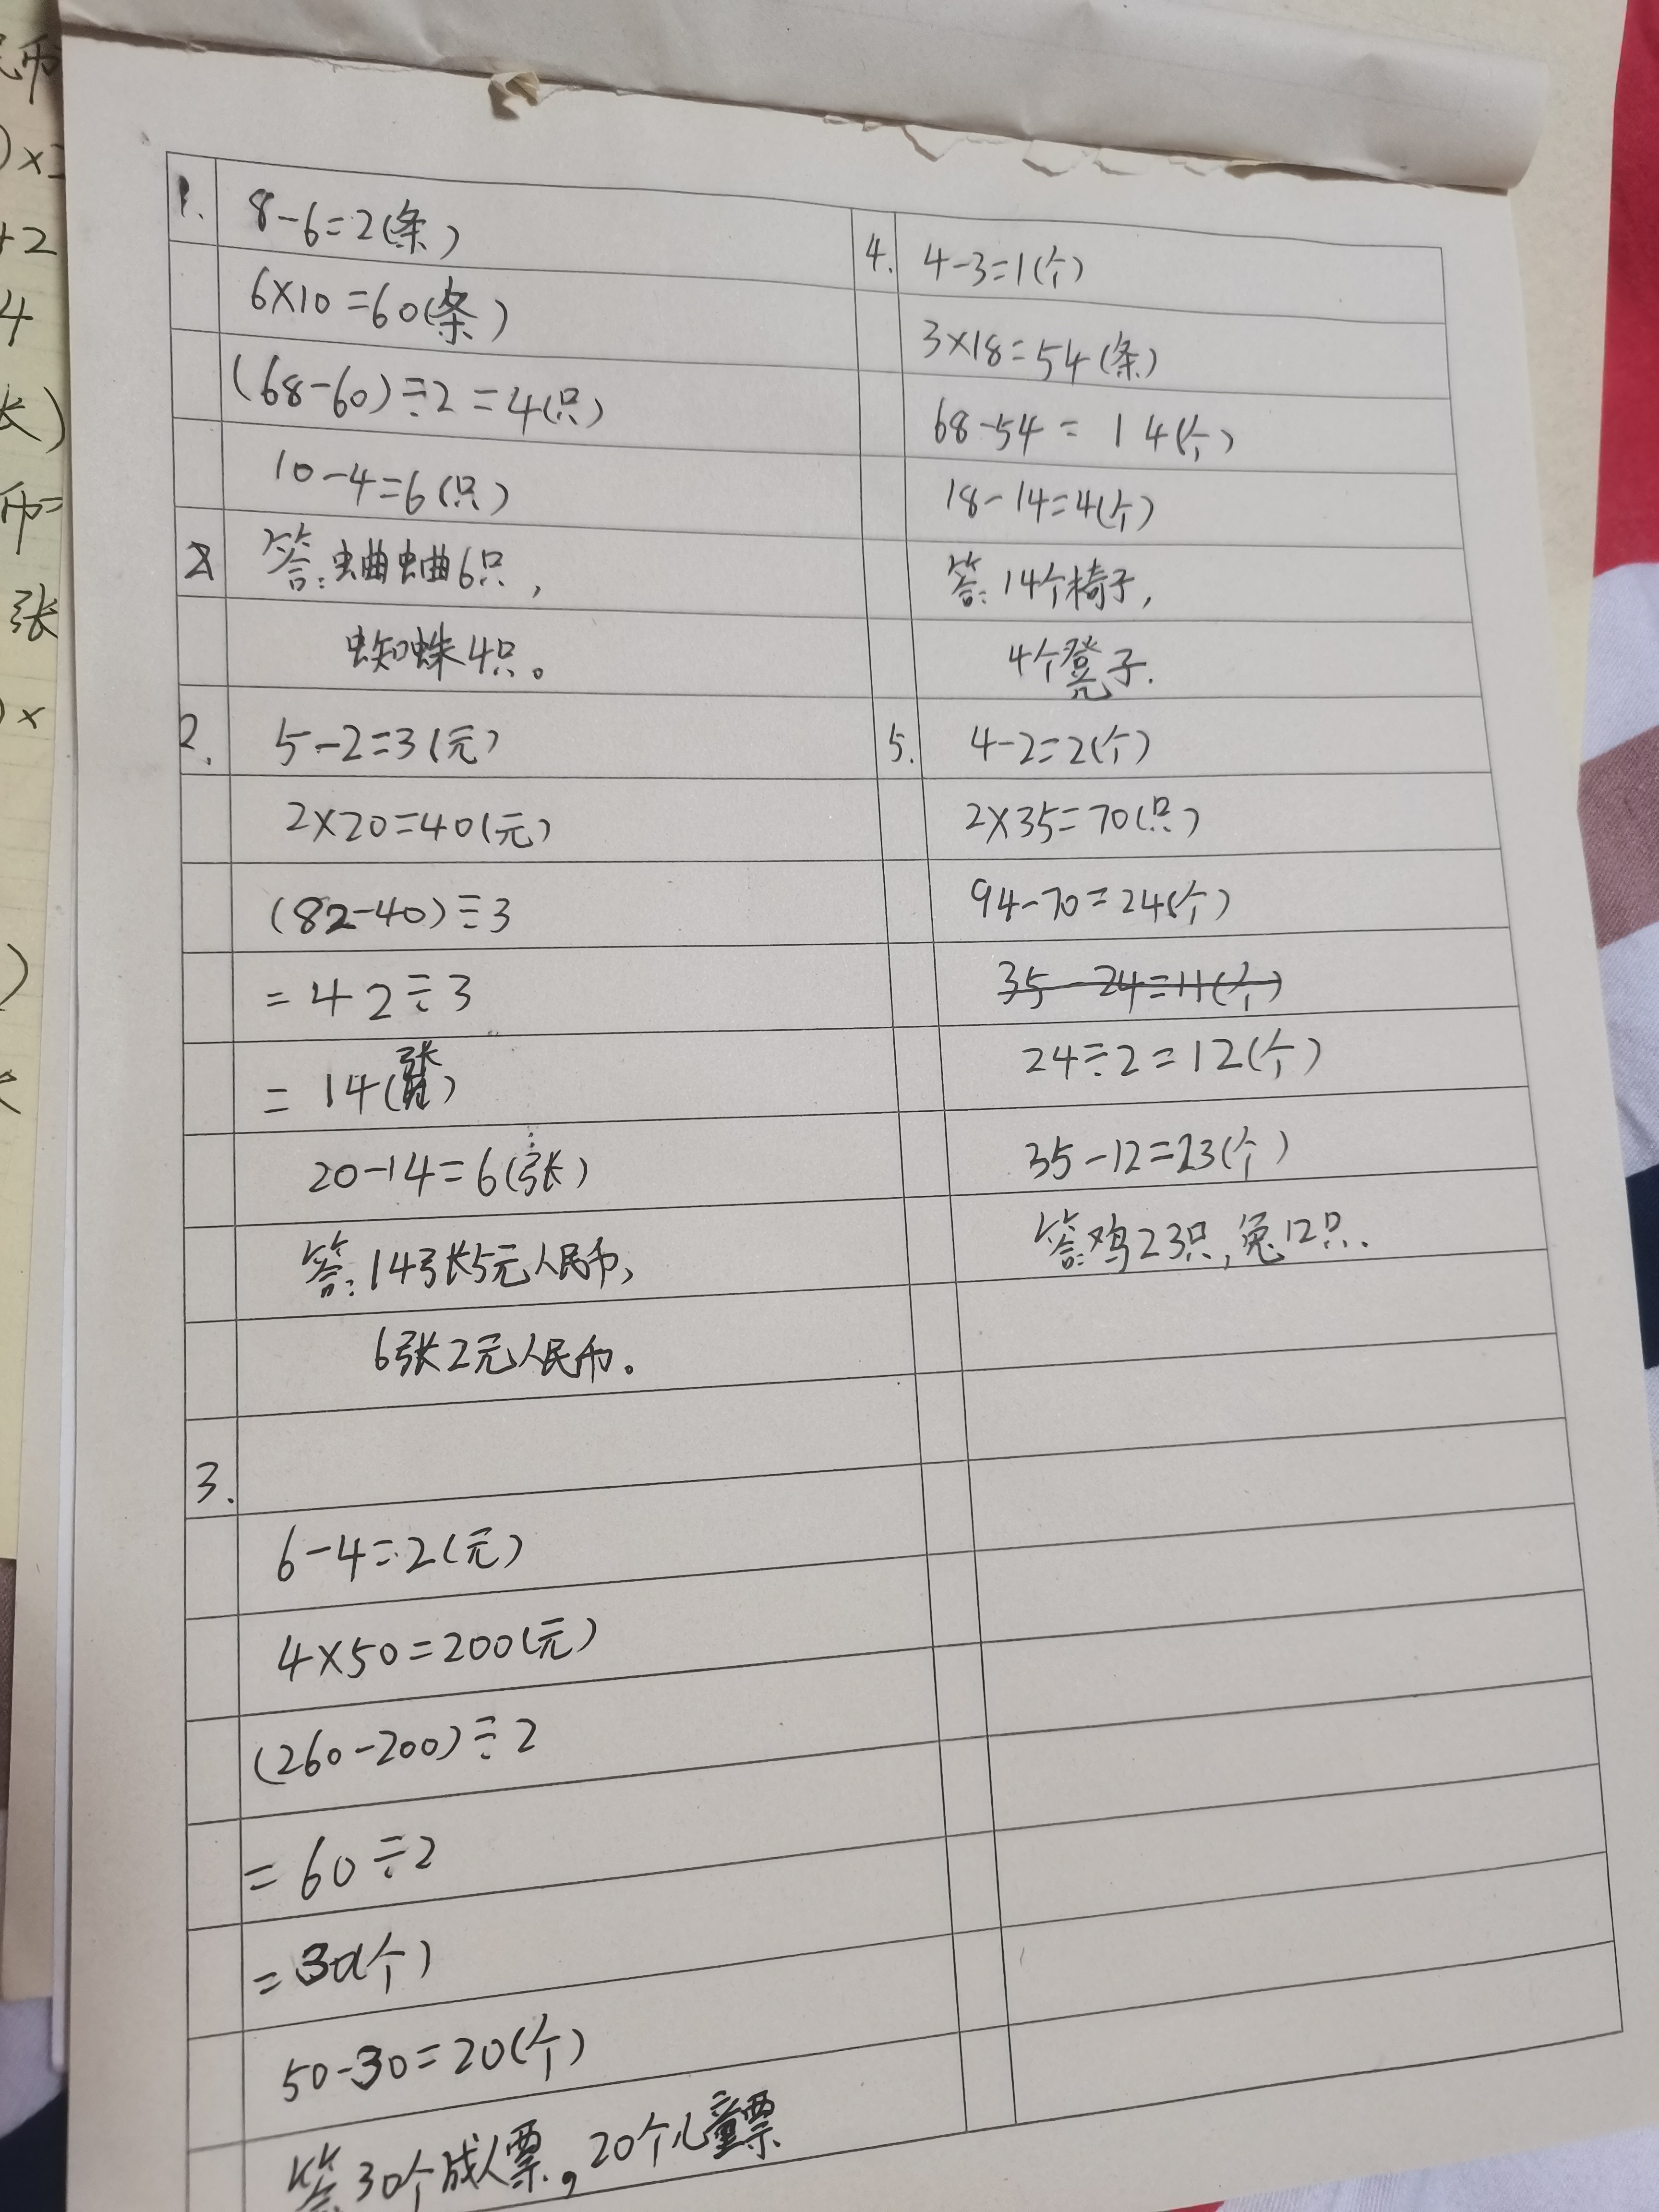 1. 8-6=2(条)
6×10=60(条)
(68-60)÷2=4(只)
10-4=6(只)
答:蛐蛐6只,
蜘蛛4只。
2. 5-2=3(元)
2×20=40(元)
(82-40)÷3
=42÷3
=14(张)
20-14=6(张)
答:14张5元人民币,
6张2元人民币。
3.
6-4=2(元)
4×50=200(元)
(260-200)÷2
=60÷2
=30(个)
50-30=20(个)
答30个成人票,20个儿童票
4. 4-3=1(个)
3×18=54(条)
68-54=14(个)
18-14=4(个)
答:14个椅子,
4个凳子.
5. 4-2=2(个)
2×35=70(只)
94-70=24(个)
35-24=11(个)
24÷2=12(个)
35-12=23(个)
答:鸡23只,兔12只.
币
)×
+2
4
长)
币=
张
)×
)